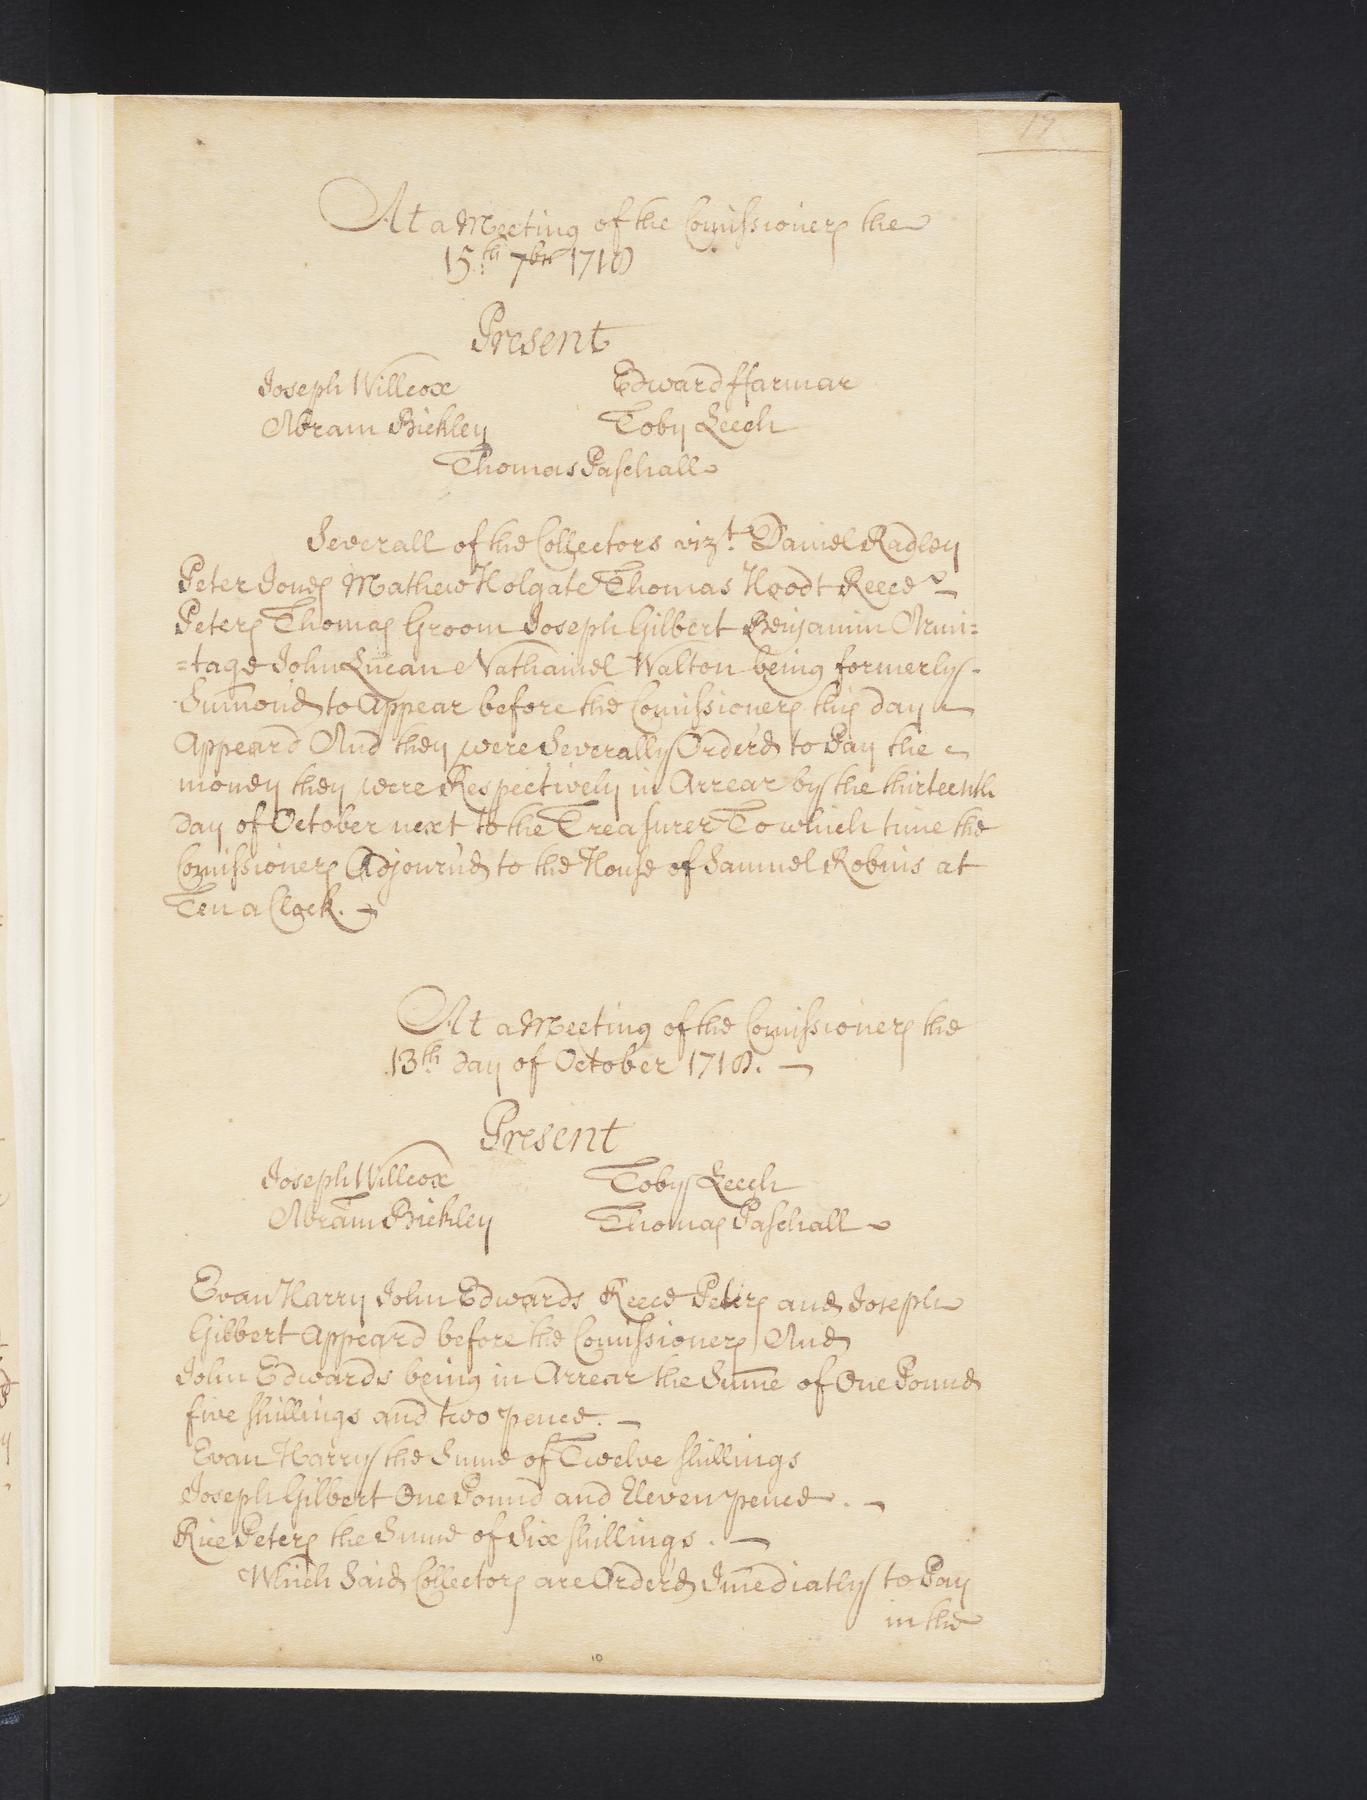 19
At a Meeting of the Comissioners the
15th 7br 1718
Present
Joseph Willcox Edward ffarmar
Abram Bickley Toby Leech
Thomas Paschall
Severall of the Collectors vizt. Daniel Radley
Peter Jones Mathew Holgate Thomas Hoodt Reece
Peters Thomas Groom Joseph Gilbert Benjamin Armi=
=tage John Lucan Nathaniel Walton being formerly
Sumon'd to Appear before the Comissioners this day
Appeard And they were Severally Order'd to Pay the
money they were Respectively in Arrear by the thirteenth
Day of October next to the Treasurer To which time the
Comissioners Adjourn'd to the House of Samuel Robins at
Ten a Clock.
At a Meeting of the Comissioners the
13th Day of October 1718.
Present
Joseph Willcox Toby Leech
Abram Bickley Thomas Paschall
Evan Harry John Edwards Reece Peters and Joseph
Gilbert Appeard before the Comissioners And
John Edwards being in Arrear the Sume of One Pound
five shillings and two pence.
Evan Harry the Sume of Twelve shillings
Joseph Gilbert One Pound and Eleven pence.
Rice Peters the Sume of Six shillings.
Which Said Collectors are Order'd Imediatly to Pay
in the
10